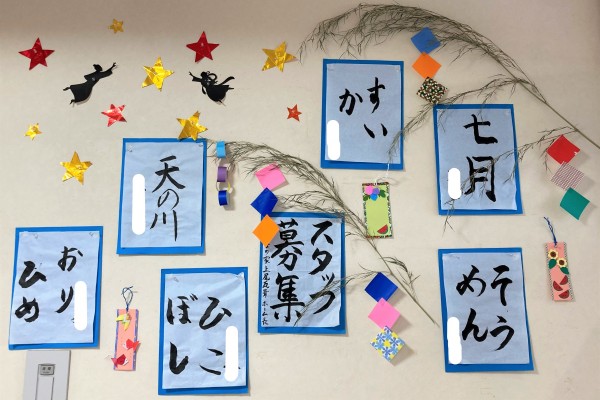 七月
すい
か
天の川
スタッフ
募集
そう
めん
おり
ひめ
ひこ
ぼし